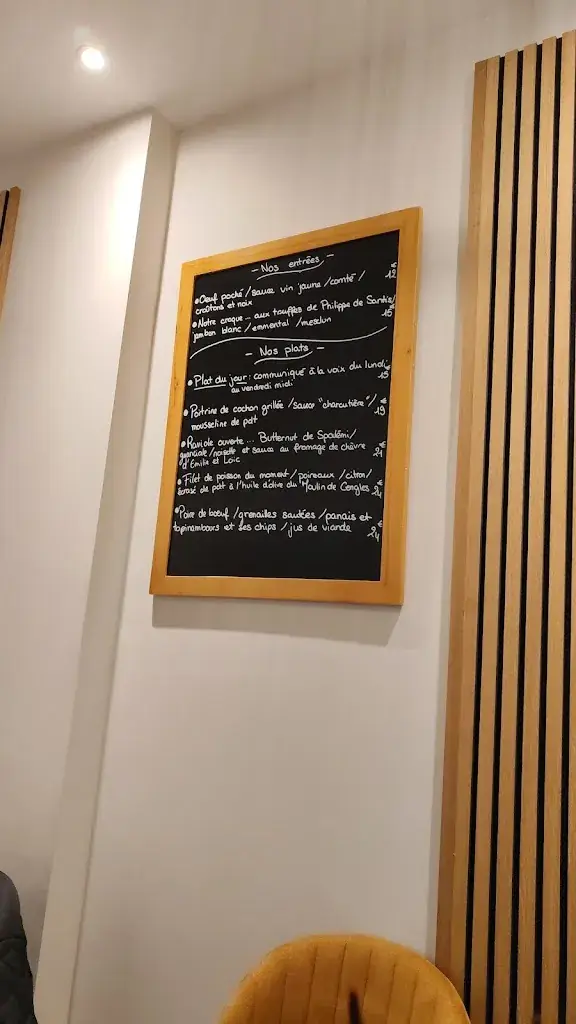 - Nos entrées -
• Oeuf poché / sauce vin jaune / comté /
croûtons et noix 12€
• Notre croque ... aux truffes de Philippe de Santis /
jambon blanc / emmental / mesclun 16€
- Nos plats -
• Plat du jour : communiqué à la voix du lundi
au vendredi midi 15€
• Poitrine de cochon grillée / sauce "charcutière" /
mousseline de pdt 19€
• Raviole ouverte ... Butternut de
guanciale / noisette et sauce au fromage de chèvre
d'Emilie et Loïc 21€
• Filet de poisson du moment / poireaux / citron /
écrasé de pdt à l'huile d'olive du Moulin de 24€
• Poire de boeuf / grenailles sautées / panais et
topinambours et ses chips / jus de viande 24€